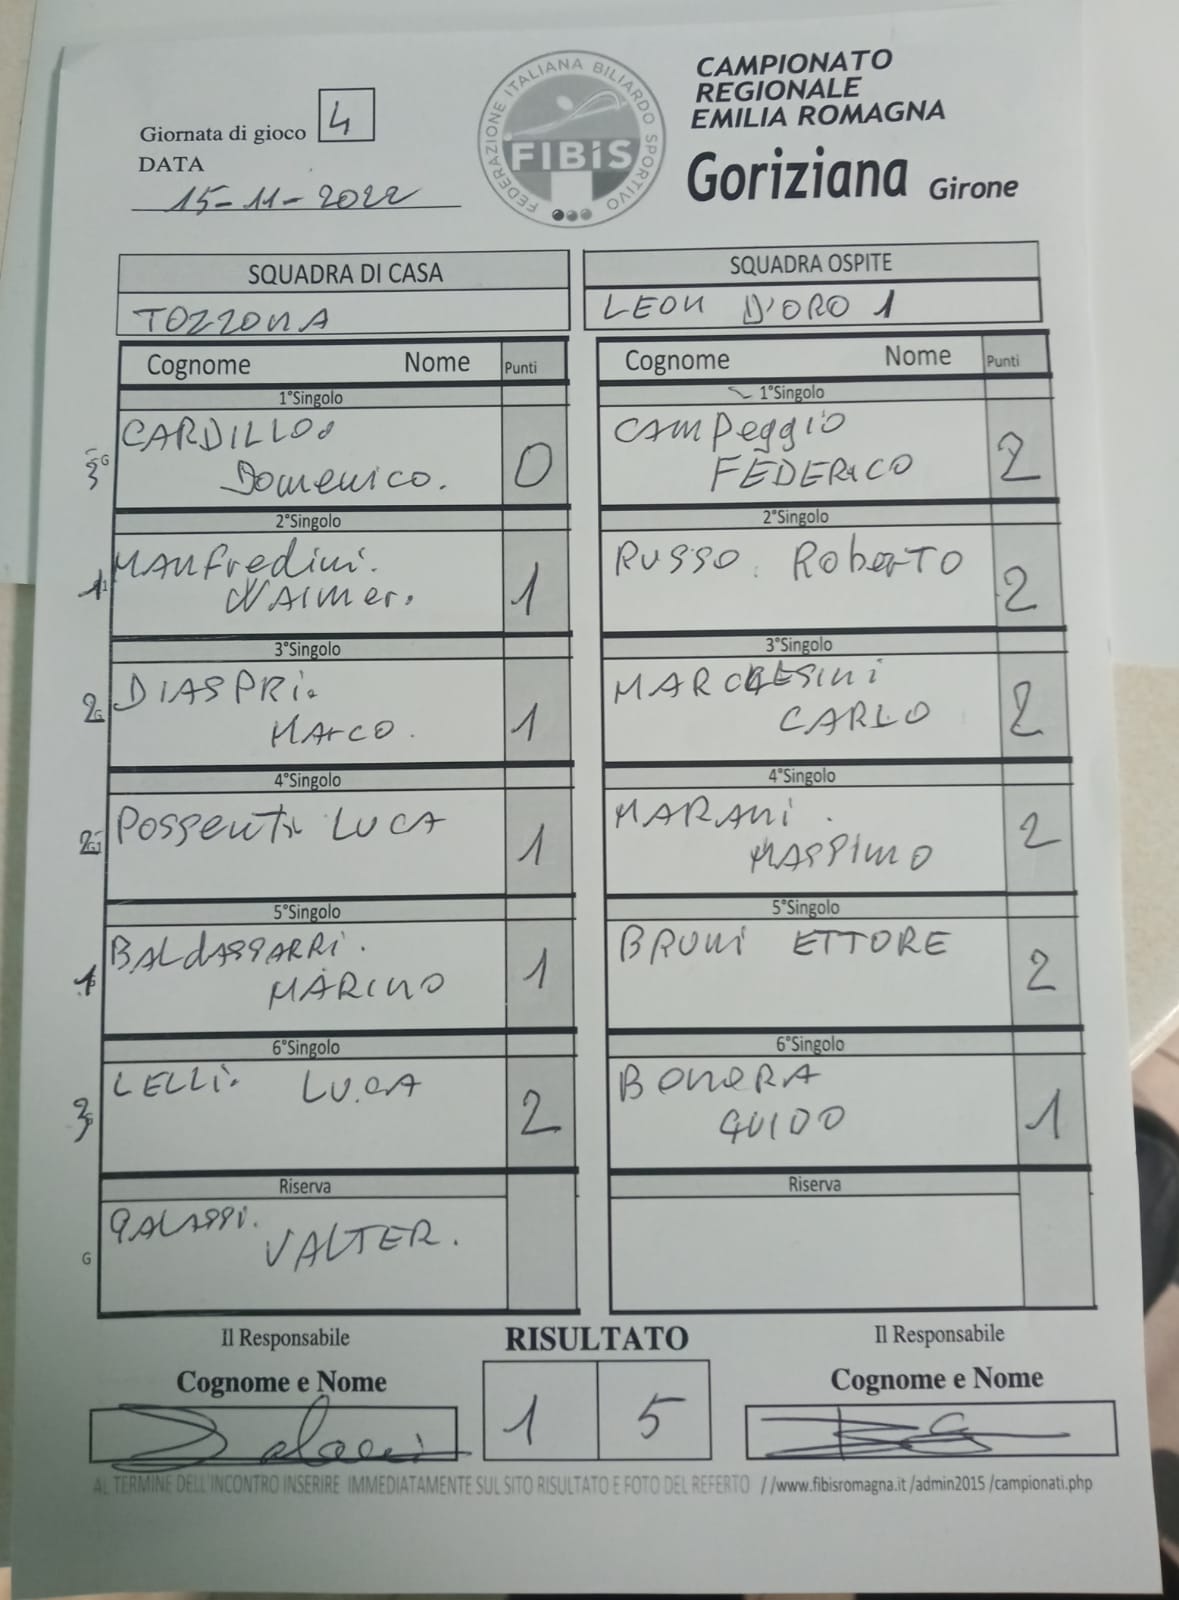 Giornata di gioco 4
DATA
15-11-2022
FEDERAZIONE ITALIANA BILIARDO SPORTIVO
FIBiS
CAMPIONATO
REGIONALE
EMILIA ROMAGNA
Goriziana Girone
SQUADRA DI CASA
TOZZONA
SQUADRA OSPITE
LEON D'ORO 1
Cognome Nome Punti
Cognome Nome Punti
1°Singolo
1°Singolo
CARDILLO
Domenico. 0
CAMPeggio
FEDERICO 2
2°Singolo
2°Singolo
MANfredini.
WAimer. 1
RUSSO Roberto 2
3°Singolo
3°Singolo
DIASPRi.
MArCO. 1
MARCHESini
CARLO 2
4°Singolo
4°Singolo
POSSenti LUCA 1
MARAni.
MASSIMO 2
5°Singolo
5°Singolo
BALdASSARRi.
MARINO 1
BRUNi ETTORE 2
6°Singolo
6°Singolo
LELLi. LUCA 2
BONORA
GUIDO 1
Riserva
Riserva
GALASSi.
VALTER.
G
Il Responsabile
Cognome e Nome
RISULTATO
1 5
Il Responsabile
Cognome e Nome
AL TERMINE DELL'INCONTRO INSERIRE IMMEDIATAMENTE SUL SITO RISULTATO E FOTO DEL REFERTO //www.fibisromagna.it /admin2015 /campionati.php